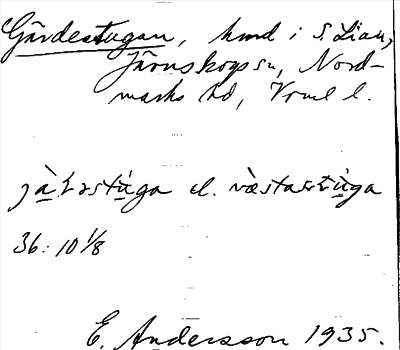 Gärdestugan, hmd i S. Lian,
Järnskogs sn, Nord-
marks hd, Vrml l.
jà̱ɫəstù̱ga el. västastù̱ga
36: 10 1/8
E. Andersson 1935.